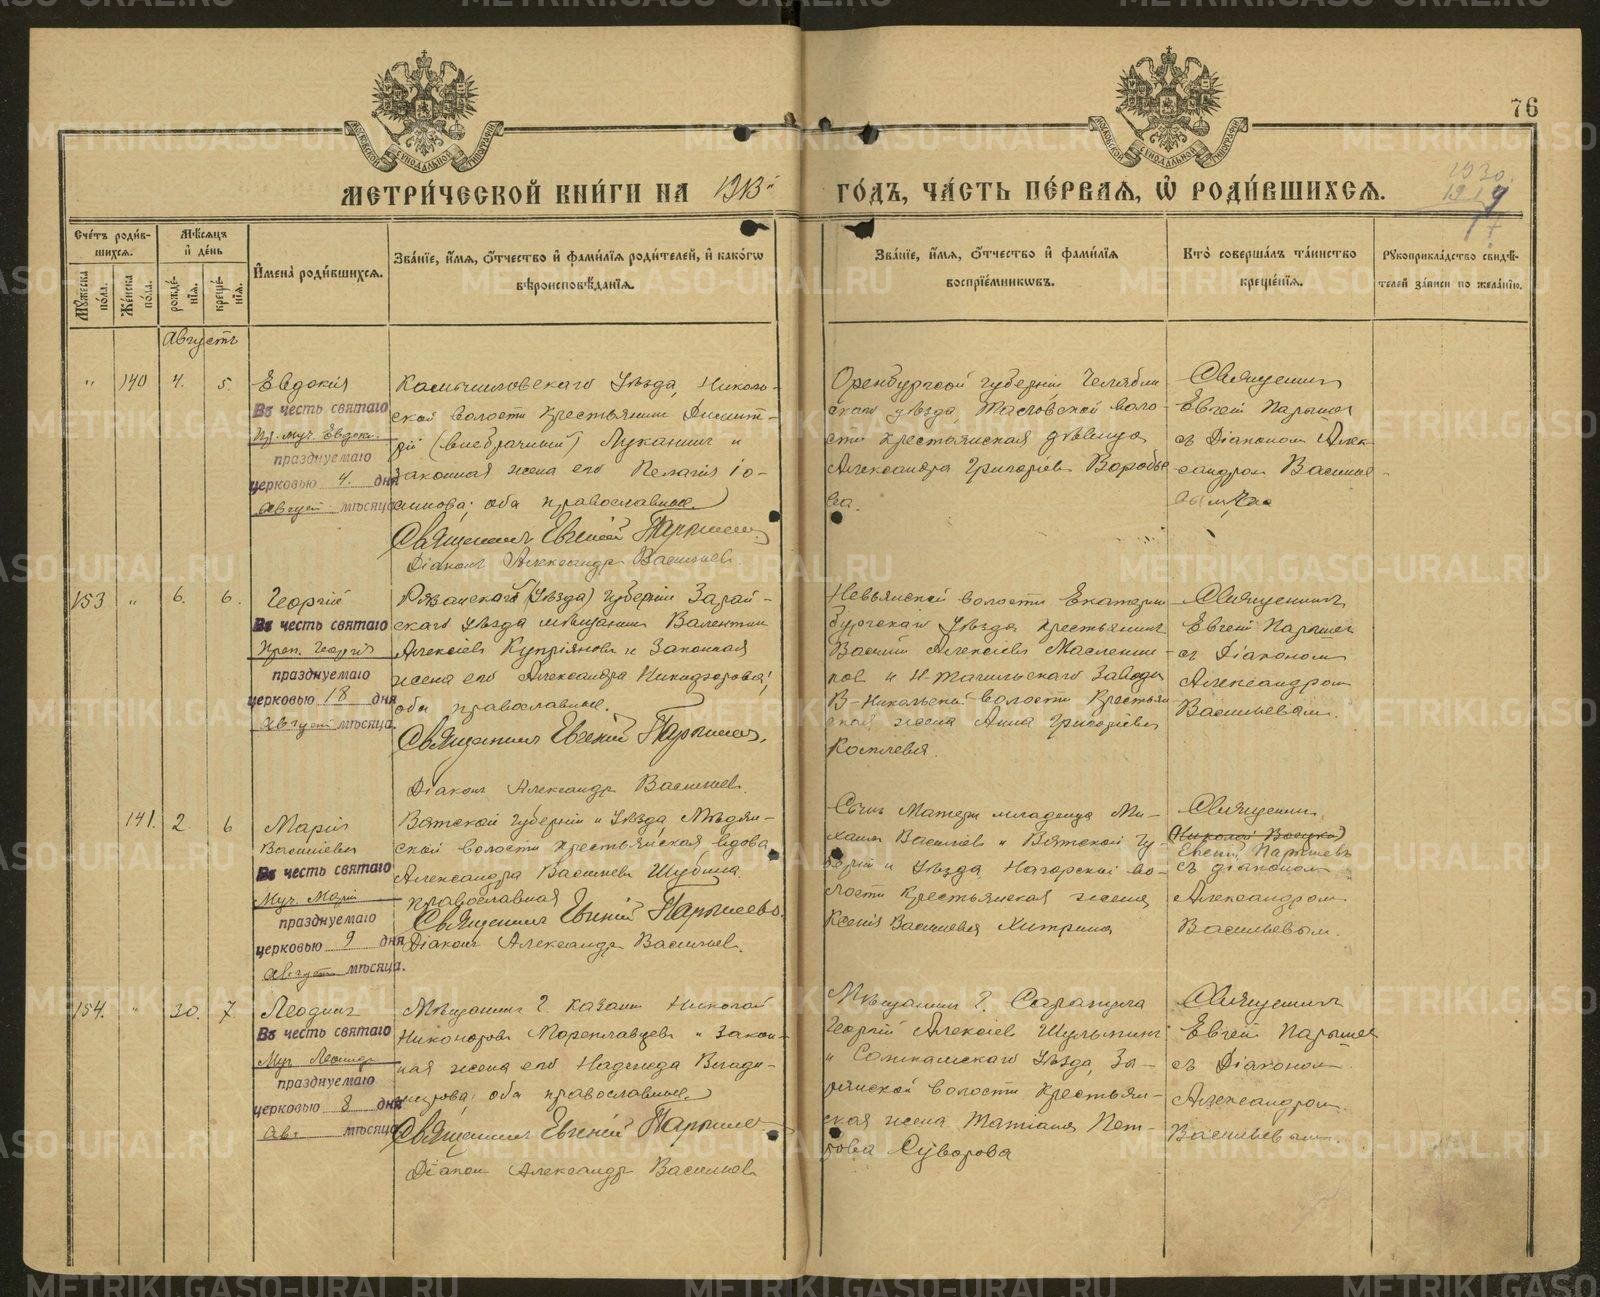 76
МЕТРИ́ЧЕСКОЙ КНИ́ГИ НА 1913 й
ГО́ДЪ, ЧА́СТЬ ПЕ́РВАЯ, Ѡ҆ РОДИ́ВШИХСЯ.
Сче́тъ роди́в-
шихся.
Мѣ́сяцъ
и҆ де́нь
Мꙋ́жеска
по́ла.
Же́нска
по́ла.
рожде́-
нїѧ.
креще́-
нїѧ.
И҆мена̀ роди́вшихся.
Зва́нїе, и҆́мѧ, ѻ҆́тчество и҆ фами́лїѧ роди́телей, и҆ како́гѡ
вѣроисповѣ́данїѧ.
Зва́нїе, и҆́мѧ, ѻ҆́тчество и҆ фами́лїѧ
воспрїе́мникѡвъ.
Кто̀ соверша́лъ та́инство
креще́нїѧ.
Рꙋкоприкла́дство свидѣ́-
телей за́писи по жела́нїю.
Августъ
" 140 4. 5. Евдокія
Въ честь святаго
Пр. муч. Евдокі.
празднуемаго
церковью 4. дня
Август мѣсяца
Камышловскаго Уѣзда, Николь-
ской волости крестьянинъ Димит-
рій (внебрачный) Луканинъ и
законная жена его Пелагія Іо-
акимова; оба православные.
Священникъ Евгеній Парышев
Діаконъ Александръ Васильев
Оренбургской губерніи Челябин
скаго уѣзда, Тасловской воло-
сти крестьянская дѣвица
Александра Григоріев Воробье
ва.
Священник
Евгеній Парышев
съ Діаконом Алек-
сандром Василье-
вымъ
153 " 6. 6. Георгій
Въ честь святаго
Преп. Георгія
празднуемаго
церковью 18 дня
Август мѣсяца.
Рязанской (Уѣзда) губерніи Зарай-
скаго Уѣзда мѣщанинъ Валентин
Алексіев Купріянов и законная
жена его Александра Никифорова;
оба православные.
Священникъ Евгеній Парышев,
Діаконъ Александръ Васильев.
Невьянской волости Екатерин
бургскаго Уѣзда, крестьянинъ
Василій Алексіев Масленни-
ков и Н-Тагильскаго Завода
В-Никольской волости Крестьян
ская жена Анна Григоріева
Копылова.
Священникъ
Евгеній Парышев
съ Діаконом
Александром
Васильевым.
141. 2. 6 Марія
Васильева
Въ честь святаго
Муч. Маріи
празднуемаго
церковью 9 дня
Август мѣсяца.
Вятской губерніи и Уѣзда, Мѣдян-
ской волости крестьянская вдова
Александра Васильева Шубина.
православная
Священникъ Евгеній Парышевъ.
Діаконъ Александръ Васильев.
Сынъ Матери младенца Ми-
хаил Васильев и Вятской гу
берніи и Уѣзда, Нагорской во-
лости Крестьянская жена
Ксенія Васильева Хитрина
Священник
Евгеній Парышевъ
съ діаконом
Александром
Васильевым.
154. " 30. 7. Леонид
Въ честь святаго
Муч. Леонида
празднуемаго
церковью 8 дня
Авг мѣсяца
Мѣщанинъ г. Казани Николай
Никоноров Мореплавцев и закон-
ная жена его Надежда Влади-
мірова; оба православные.
Священникъ Евгеній Парышев
Діакон Александр Васильев
Мѣщанинъ г. Сарапула
Георгій Алексіев Шульминъ
и Соликамскаго Уѣзда, Зы-
рянской волости крестьян-
ская жена Татіана Пет-
рова Суворова
Священникъ
Евгеній Парышев
съ Діаконом
Александром
Васильевым.